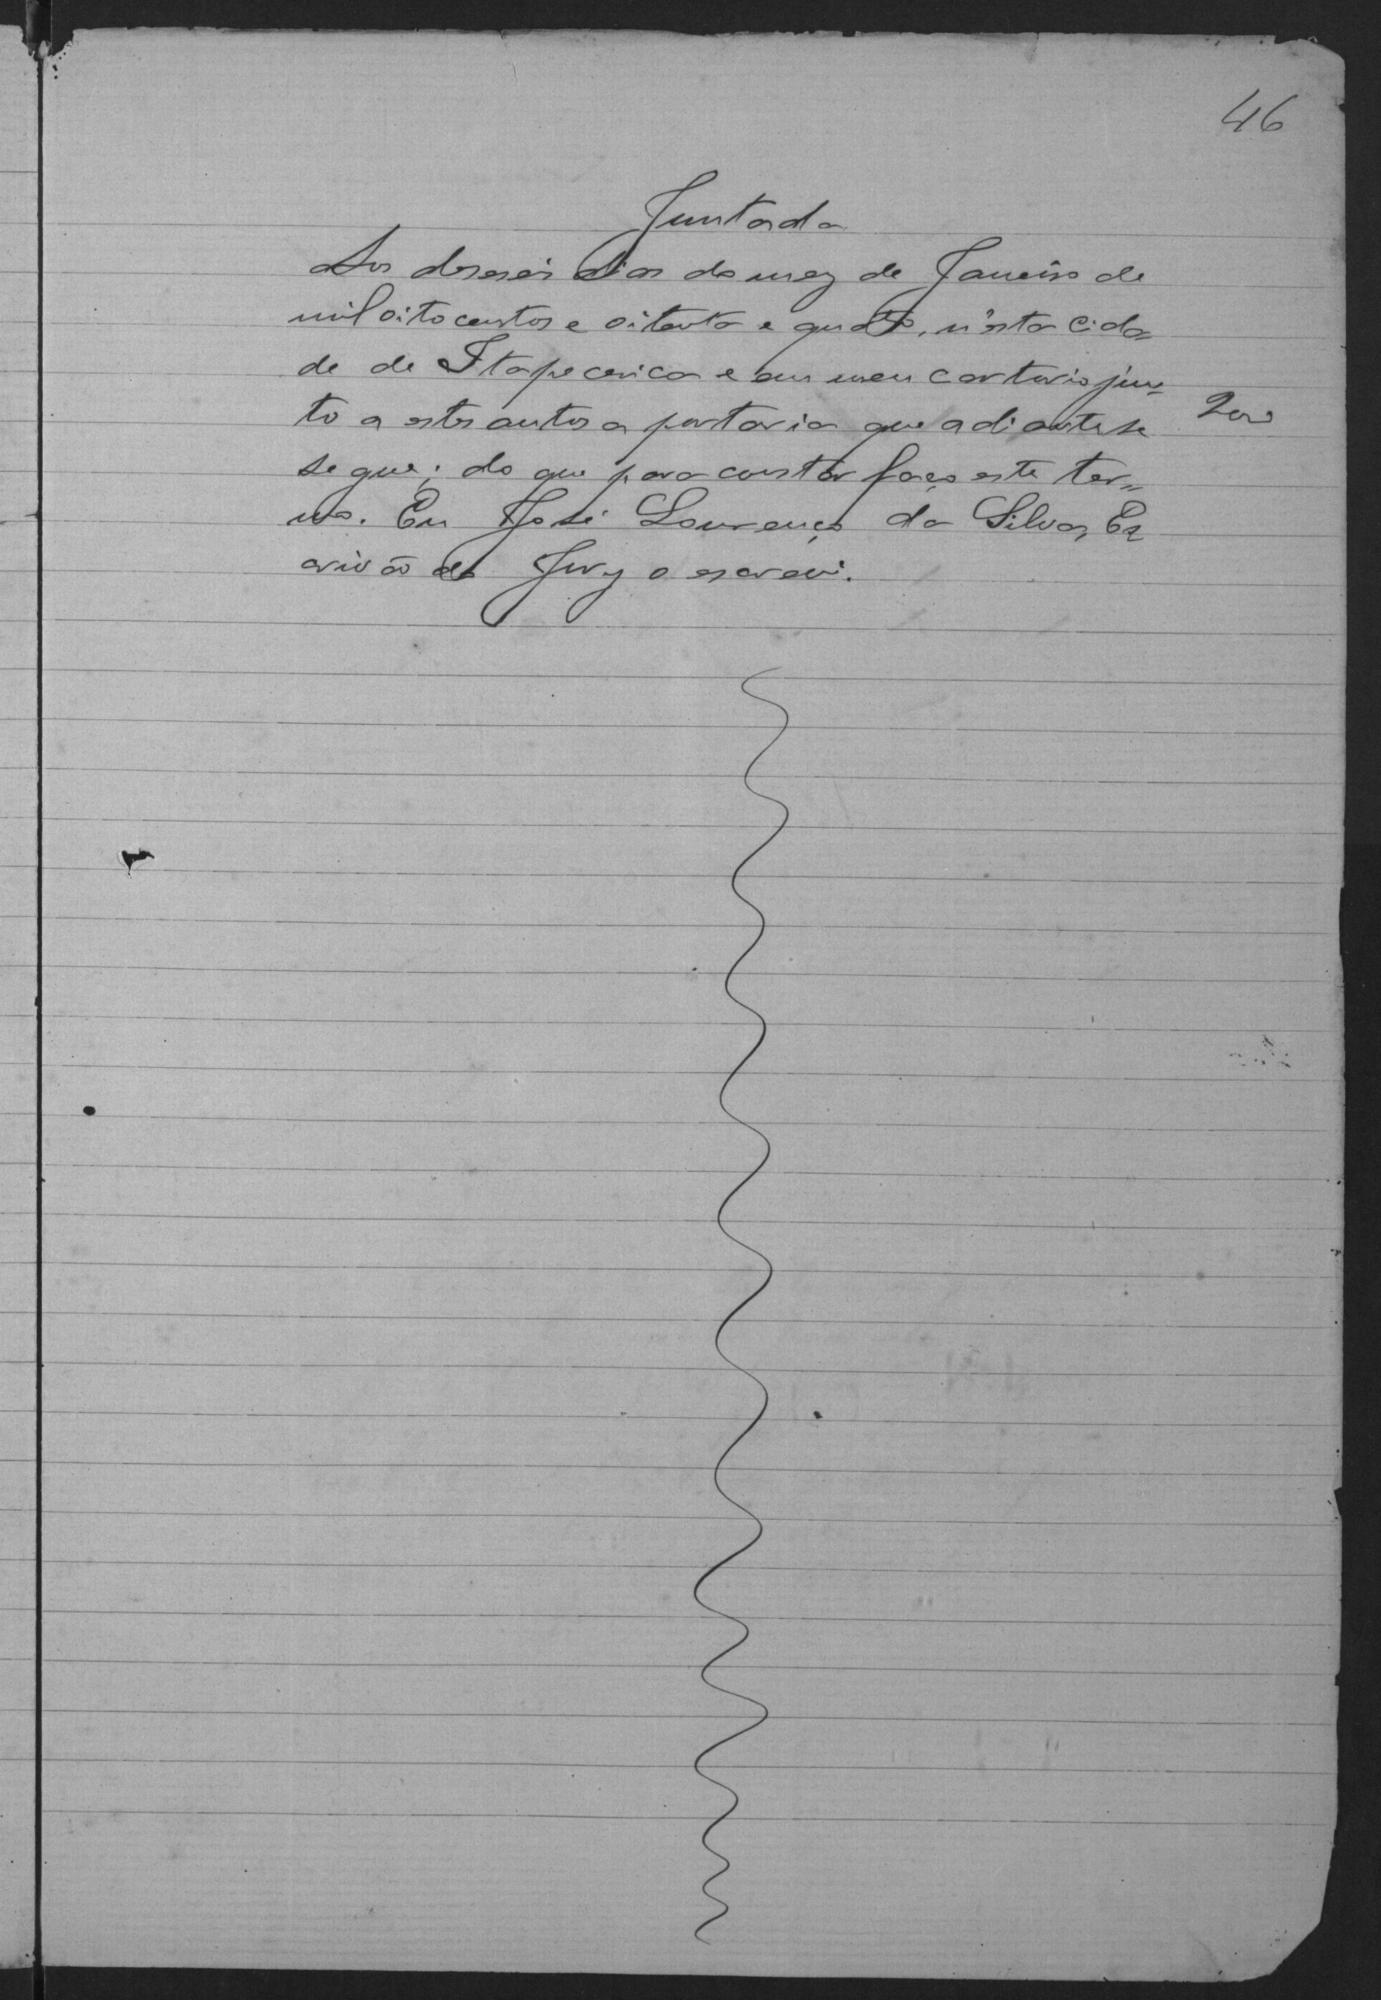 46
Juntada
Aos deseseis dias do mez de Janeiro de
mil oito centos e oitenta e quatro, n'esta Cida
de de Itapecerica e em meu cartorio jun,,
to a estes autos a portaria que adiante se
200
segue; do que para constar faço este ter,,
mo. Eu José Lourenço da Silva, Es
crivão do Jury o escrevi.